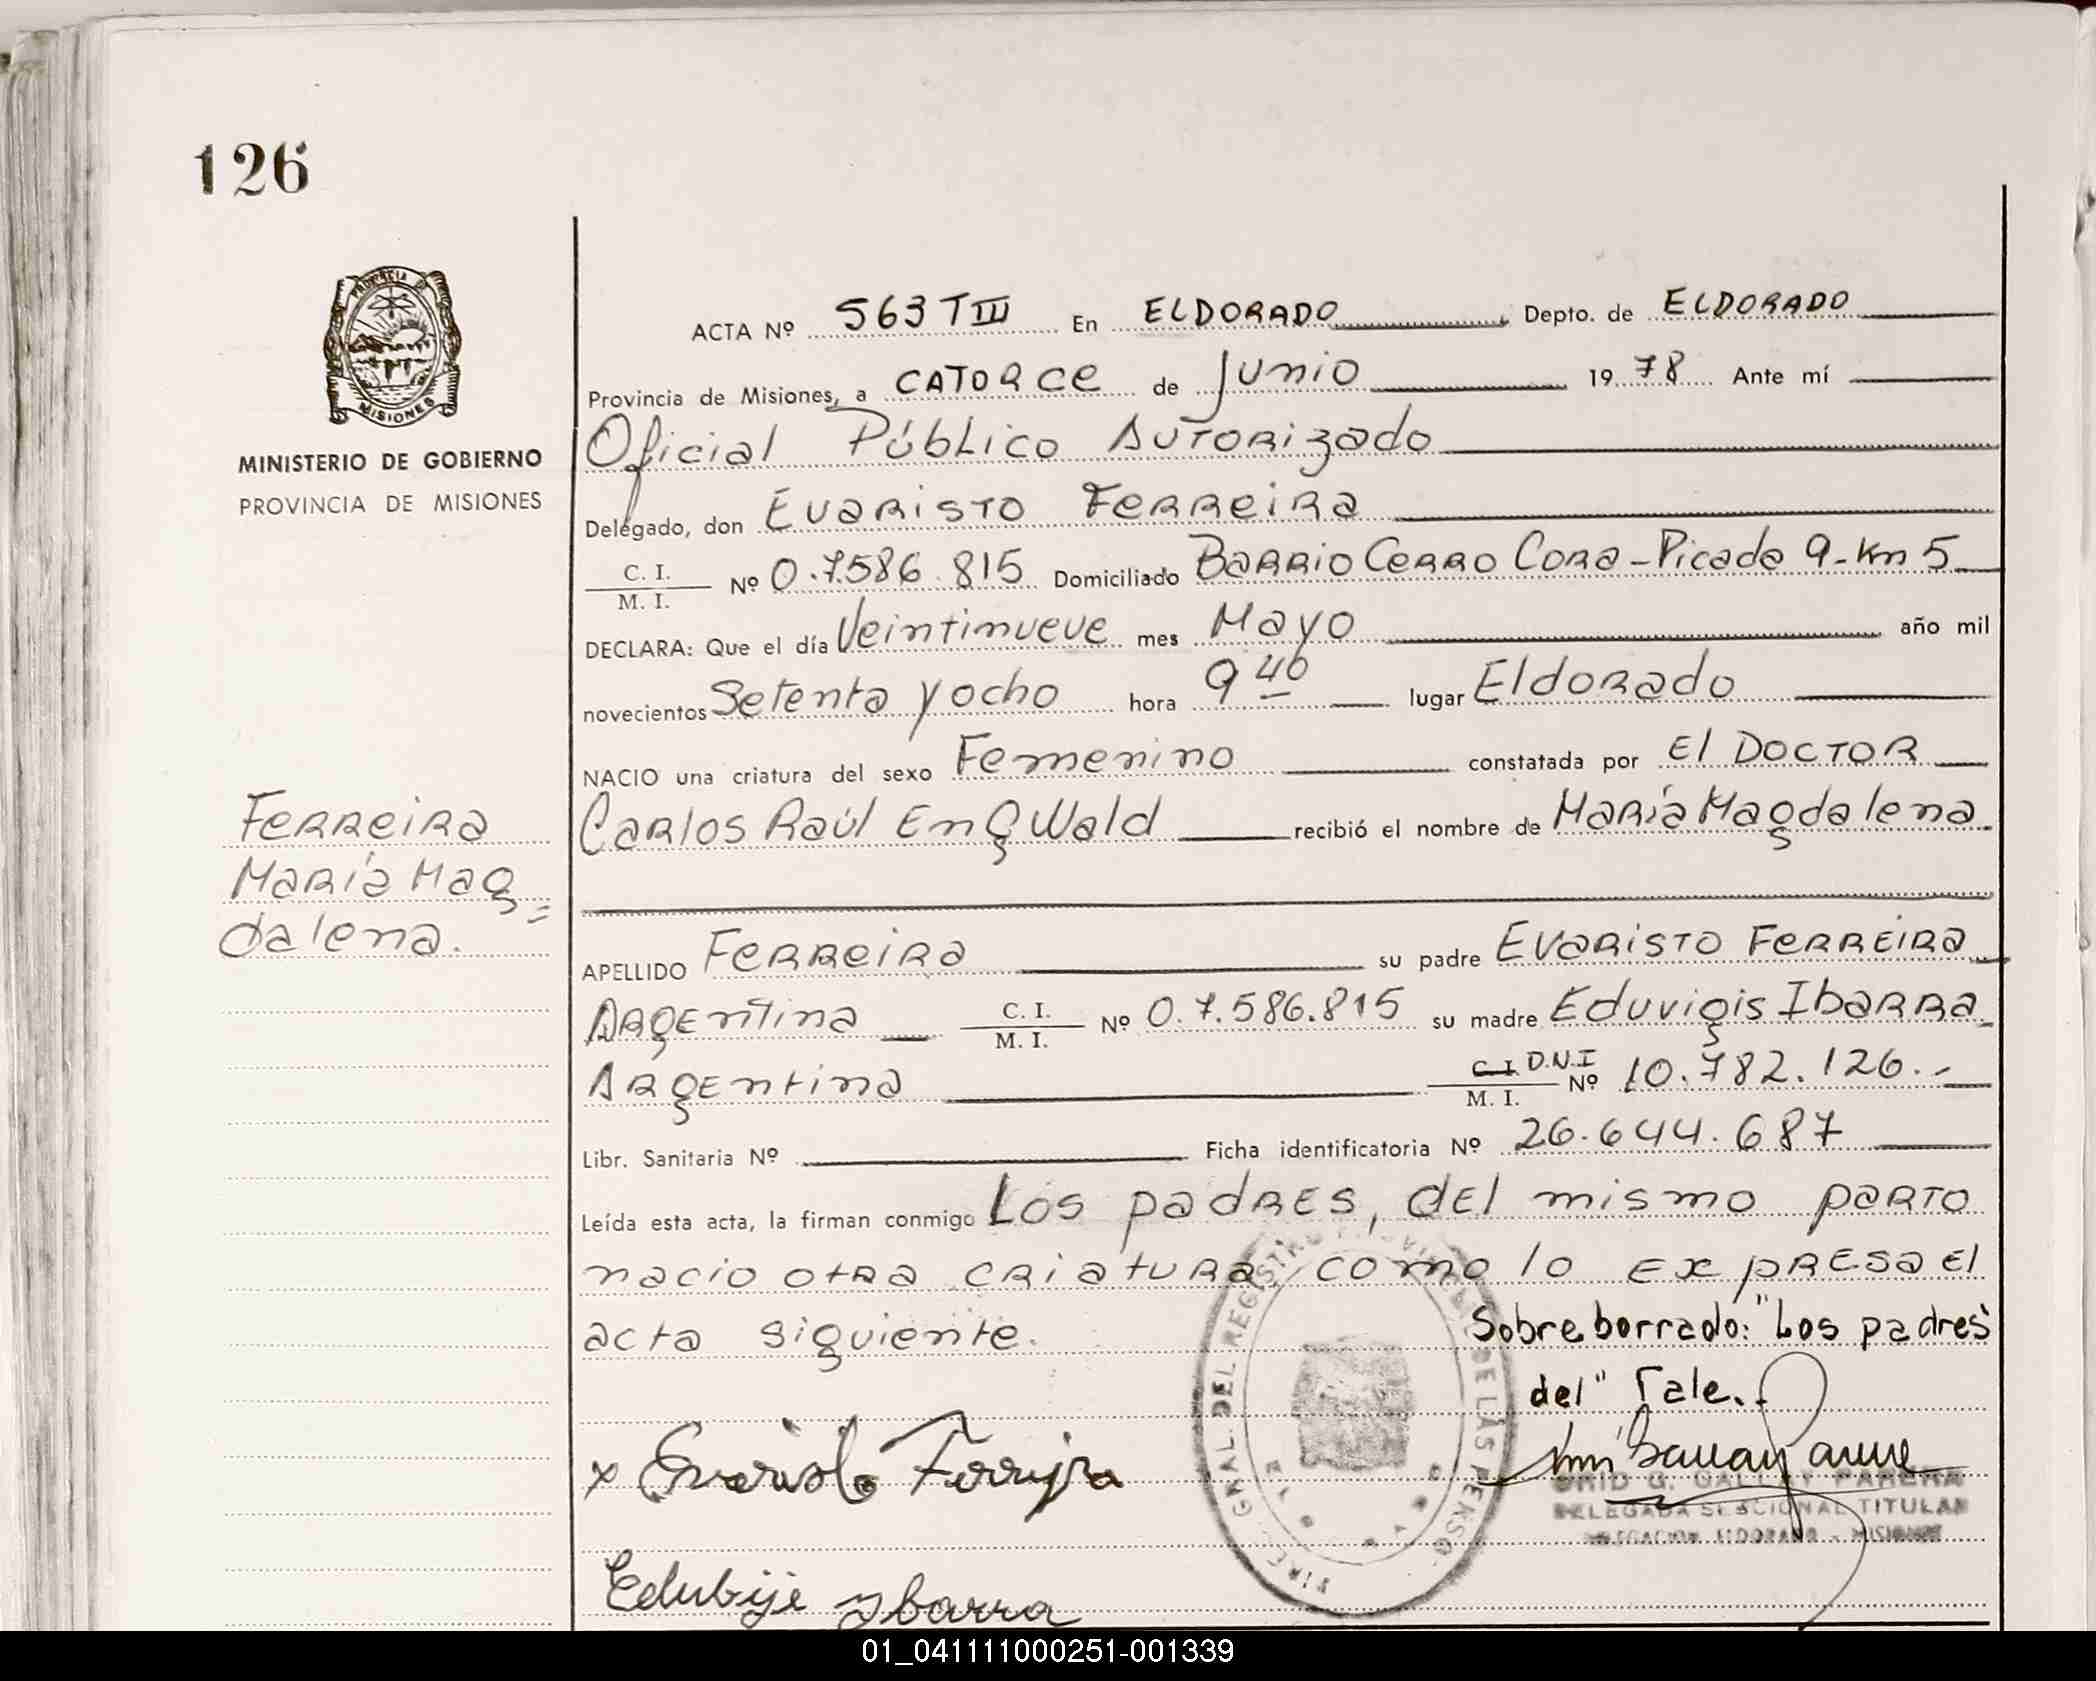 126
PROVINCIA DE
MISIONES
MINISTERIO DE GOBIERNO
PROVINCIA DE MISIONES
ACTA Nº 563 T III En ELDORADO Depto. de ELDORADO
Provincia de Misiones, a CATORCE de Junio 1978 Ante mí
Oficial Público Autorizado
Delegado, don Evaristo Ferreira
C. I. / M. I. Nº 0.7.586.815 Domiciliado Barrio Cerro Cora - Picada 9 - Km 5
DECLARA: Que el día Veintinueve mes Mayo año mil
novecientos Setenta y ocho hora 9 40 lugar Eldorado
NACIO una criatura del sexo Femenino constatada por El DOCTOR
Carlos Raúl EngWald recibió el nombre de María Magdalena
Ferreira
María Mag=
dalena.
APELLIDO Ferreira su padre Evaristo Ferreira
Argentina C. I. / M. I. Nº 0.7.586.815 su madre Eduvigis Ibarra
Argentina C. I. D.N.I / M. I. Nº 10.782.126.-
Libr. Sanitaria Nº Ficha identificatoria Nº 26.644.687
Leída esta acta, la firman conmigo Los padres, del mismo parto
nacio otra criatura como lo expresa el
acta siguiente.
Sobre borrado: "Los padres
del" Vale.
x Evaristo Ferreira
DELEGADA SECCIONAL TITULAR
DELEGACION ELDORADO - MISIONES
Edubije Ybarra
GRAL. DEL REGISTRO PROVINCIAL DE LAS PERSO
01_041111000251-001339